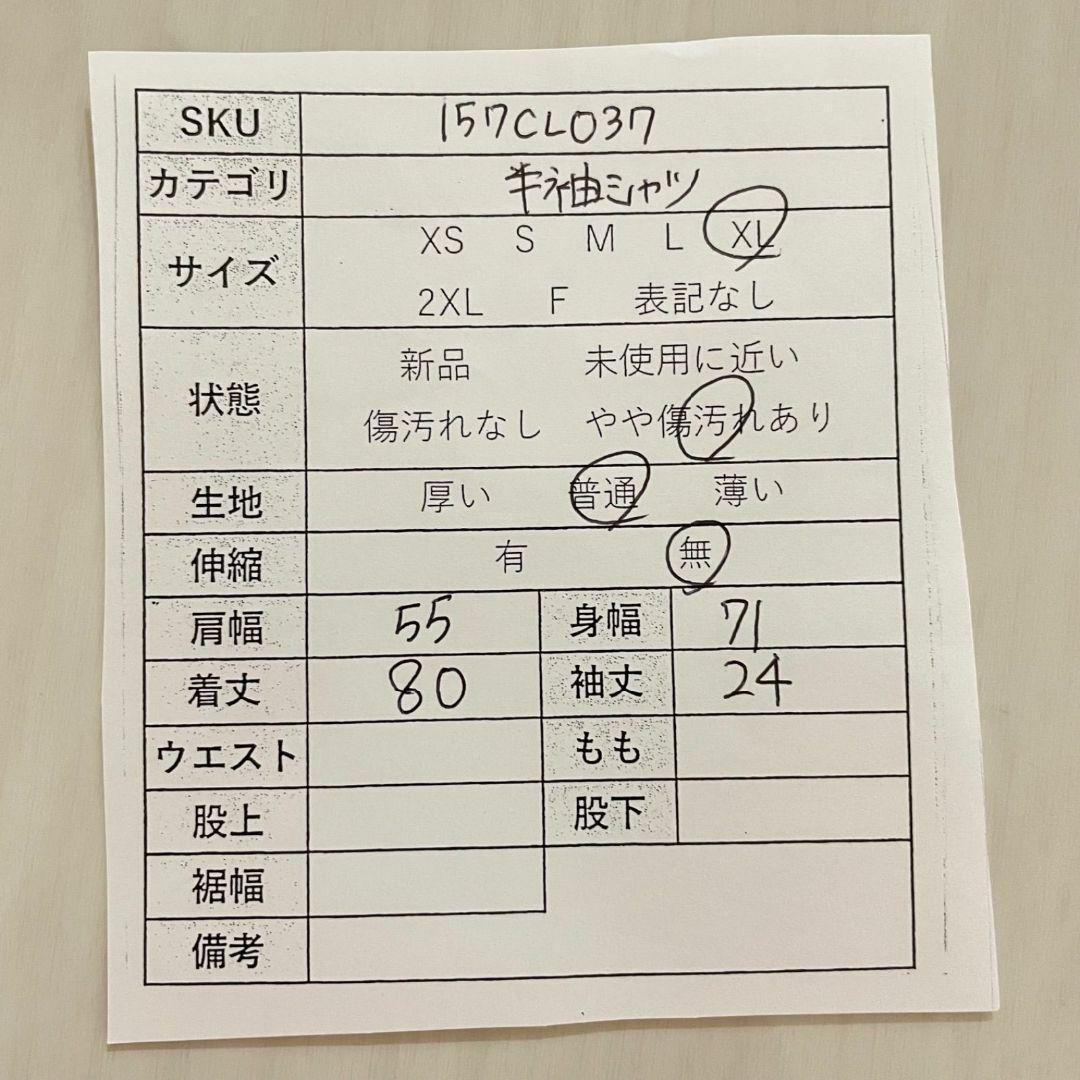 SKU 157CL037
カテゴリ 半袖シャツ
サイズ XS S M L XL
2XL F 表記なし
状態 新品 未使用に近い
傷汚れなし やや傷汚れあり
生地 厚い 普通 薄い
伸縮 有 無
肩幅 55 身幅 71
着丈 80 袖丈 24
ウエスト もも
股上 股下
裾幅
備考